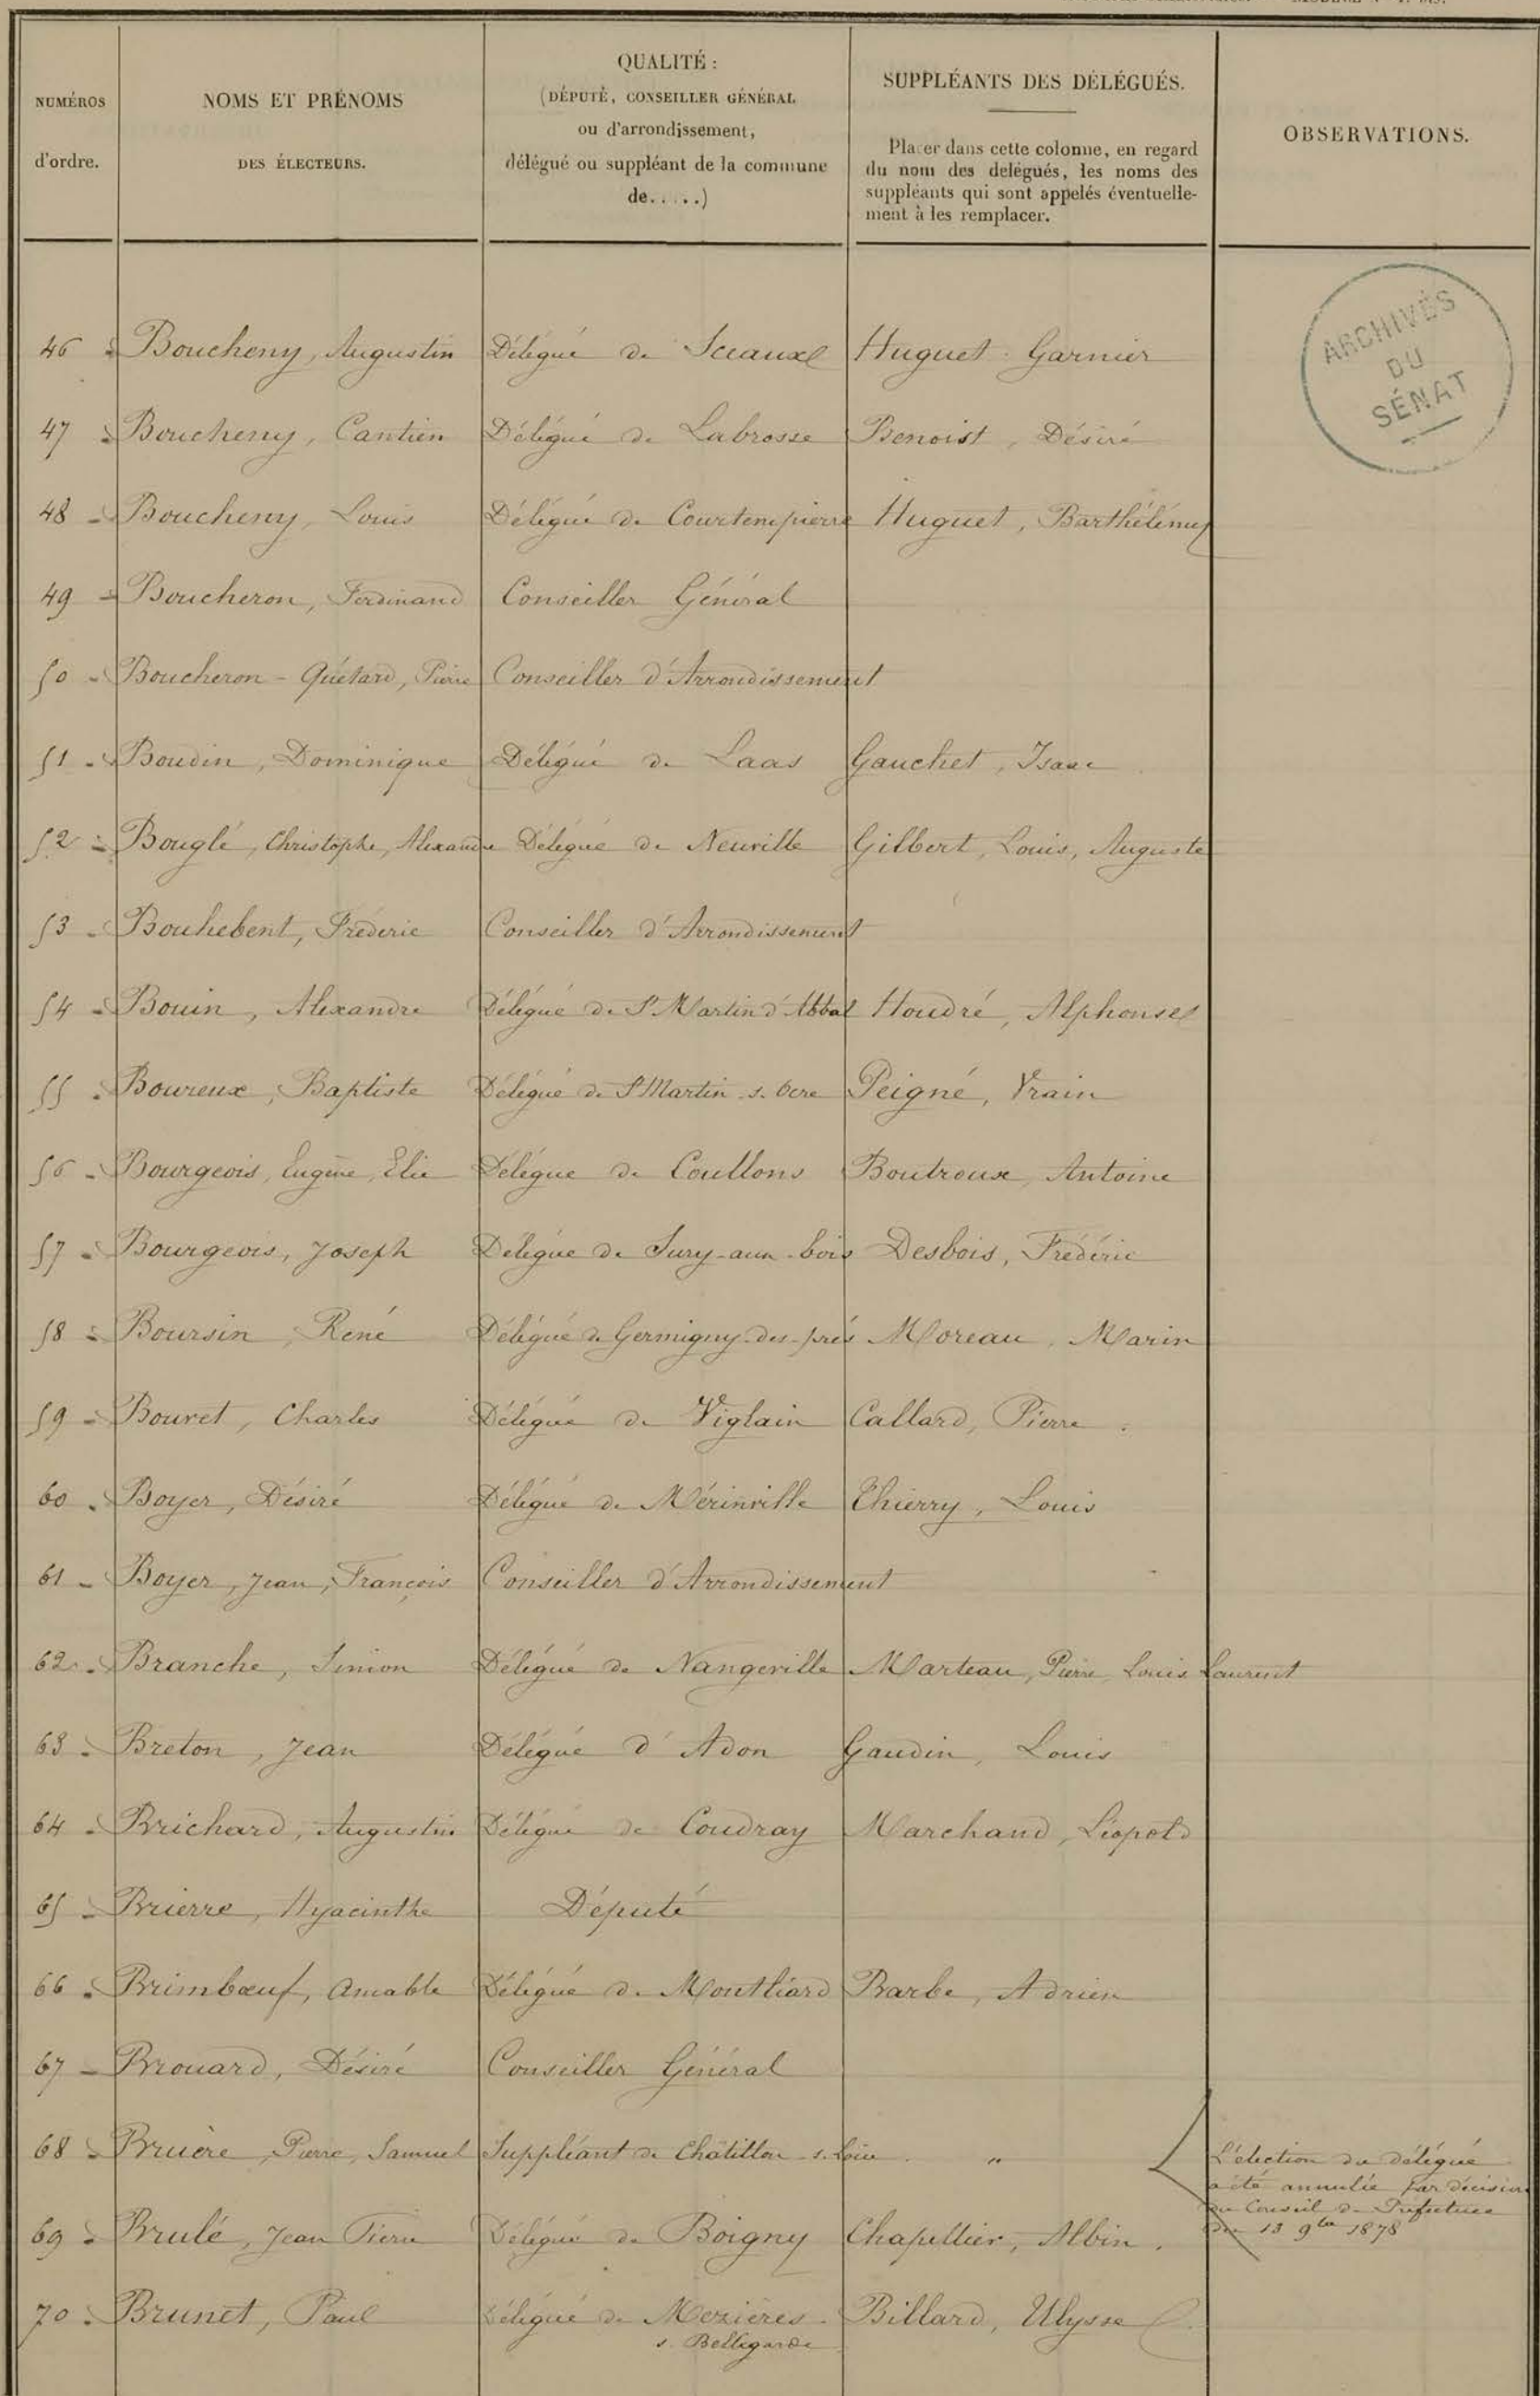 NUMÉROS
d'ordre.
NOMS ET PRÉNOMS
DES ÉLECTEURS.
QUALITÉ :
(DÉPUTÉ, CONSEILLER GÉNÉRAL
ou d'arrondissement,
délégué ou suppléant de la commune
de.....)
SUPPLÉANTS DES DÉLÉGUÉS.
Placer dans cette colonne, en regard
du nom des délégués, les noms des
suppléants qui sont appelés éventuelle-
ment à les remplacer.
OBSERVATIONS.
ARCHIVES
DU
SÉNAT
46 Boucheny, Augustin Délégué de Sceaux Huguet Garnier
47 Boucheny, Cantien Délégué de Labrosse Benoist, Désiré
48 Boucheny, Louis Délégué de Courtempierre Huguet, Barthélémy
49 Boucheron, Ferdinand Conseiller Général
50 Boucheron-Quétard, Pierre Conseiller d'Arrondissement
51 Boudin, Dominique Délégué de Laas Gauchet, Isaac
52 Bouglé, Christophe, Alexandre Délégué de Neuville Gilbert, Louis, Auguste
53 Bouhebent, Fréderic Conseiller d'Arrondissement
54 Bouin, Alexandre Délégué de St Martin d'Abbat Houdré, Alphonse
55 Boureux, Baptiste Délégué de St Martin s. Ocre Peigné, Vrain
56 Bourgeois, Eugène, Elie Délégué de Coullons Boutroux, Antoine
57 Bourgeois, Joseph Délégué de Sury-aux-bois Desbois, Frédéric
58 Boursin, René Délégué de Germigny-des-prés Moreau, Marin
59 Bouvet, Charles Délégué de Viglain Callard, Pierre.
60 Boyer, Désiré Délégué de Mérinville Thierry, Louis
61 Boyer, Jean, François Conseiller d'Arrondissement
62 Branche, Simion Délégué de Nangeville Marteau, Pierre Louis Laurent
63 Breton, Jean Délégué d'Adon Gaudin, Louis
64 Brichard, Augustin Délégué de Coudray Marchand, Léopold
65 Brierre, Hyacinthe Député
66 Brimbœuf, Amable Délégué de Montliard Barbe, Adrien
67 Brouard, Désiré Conseiller Général
68 Bruère, Pierre, Samuel Suppléant de Châtillon-s.Loin "
L'élection du délégué
a été annulée par décision
du Conseil de Préfecture
du 13 9bre 1878
69 Brulé, Jean Pierre Délégué de Boigny Chapellier, Albin.
70 Brunet, Paul Délégué de Mezières Billard, Ulysse
s. Bellegarde